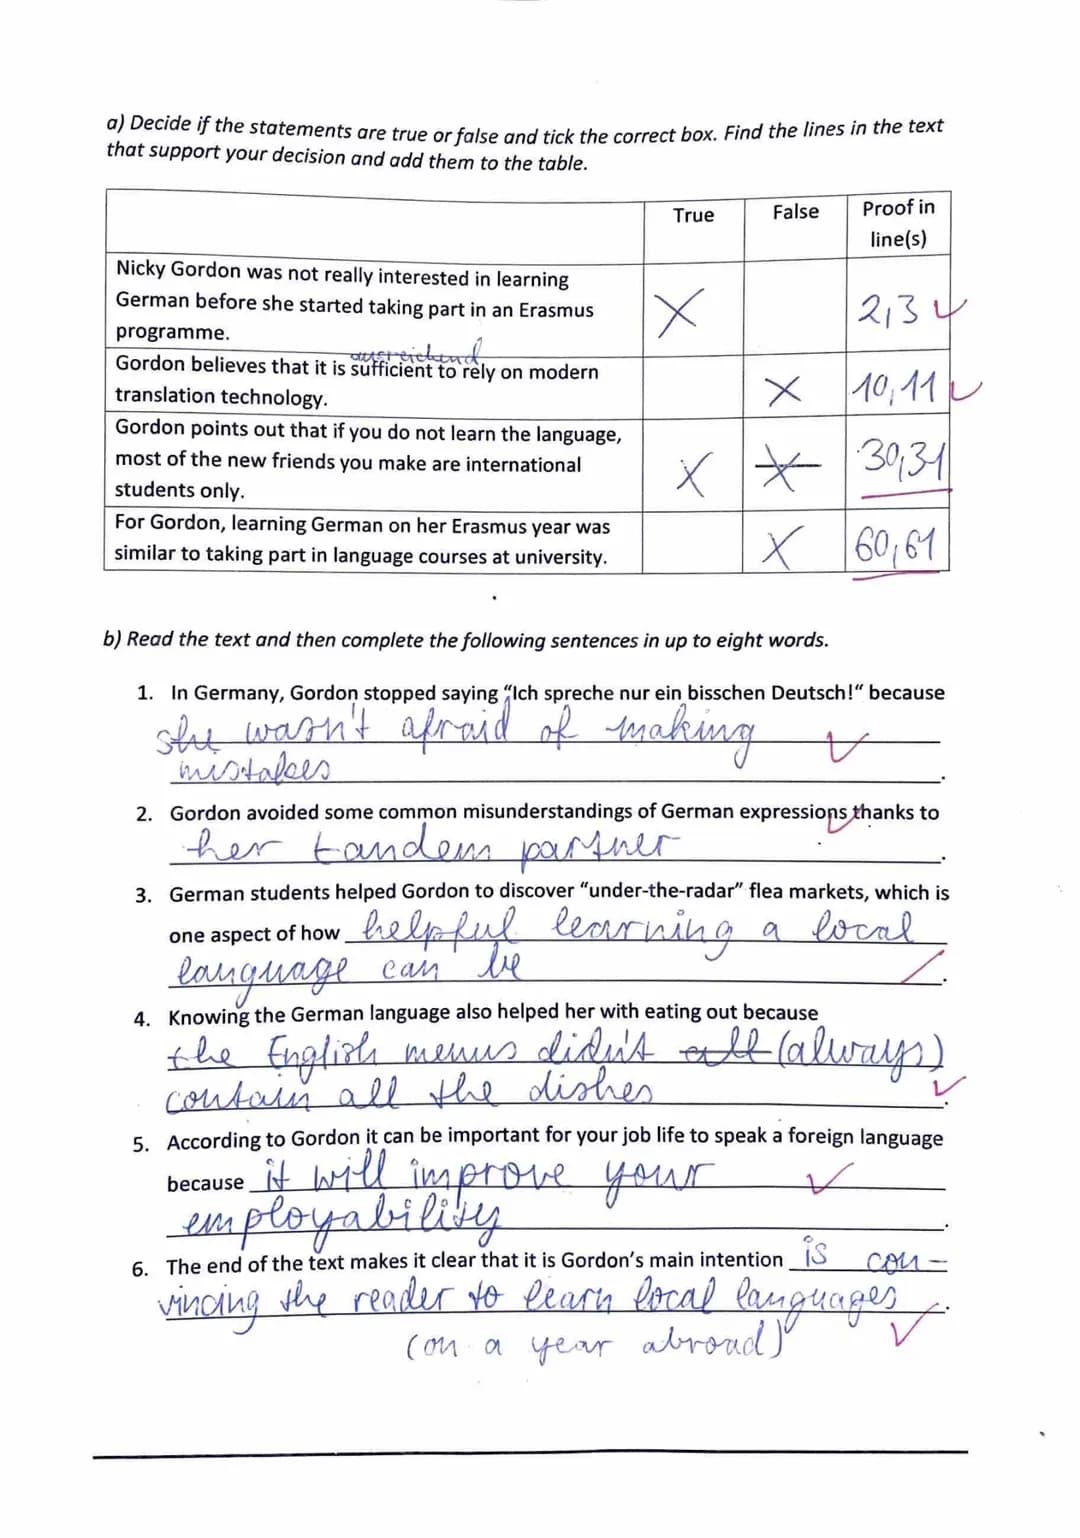 a) Decide if the statements are true or false and tick the correct box. Find the lines in the text
that support your decision and add them to the table.
True False Proof in
line(s)
Nicky Gordon was not really interested in learning
German before she started taking part in an Erasmus
programme.
X 2,3
ausreichend
Gordon believes that it is sufficient to rely on modern
translation technology.
X 10,11
Gordon points out that if you do not learn the language,
most of the new friends you make are international
students only.
X X 30,31
For Gordon, learning German on her Erasmus year was
similar to taking part in language courses at university.
X 60,61
b) Read the text and then complete the following sentences in up to eight words.
1. In Germany, Gordon stopped saying “Ich spreche nur ein bisschen Deutsch!“ because
she wasn't afraid of making
mistakes.
2. Gordon avoided some common misunderstandings of German expressions thanks to
her tandem partner.
3. German students helped Gordon to discover “under-the-radar” flea markets, which is
one aspect of how helpful learning a local
language can be.
4. Knowing the German language also helped her with eating out because
the English menus didn't all (always)
contain all the dishes.
5. According to Gordon it can be important for your job life to speak a foreign language
because it will improve your
employability.
6. The end of the text makes it clear that it is Gordon's main intention is con-
vincing the reader to learn local languages.
(on a year abroad)